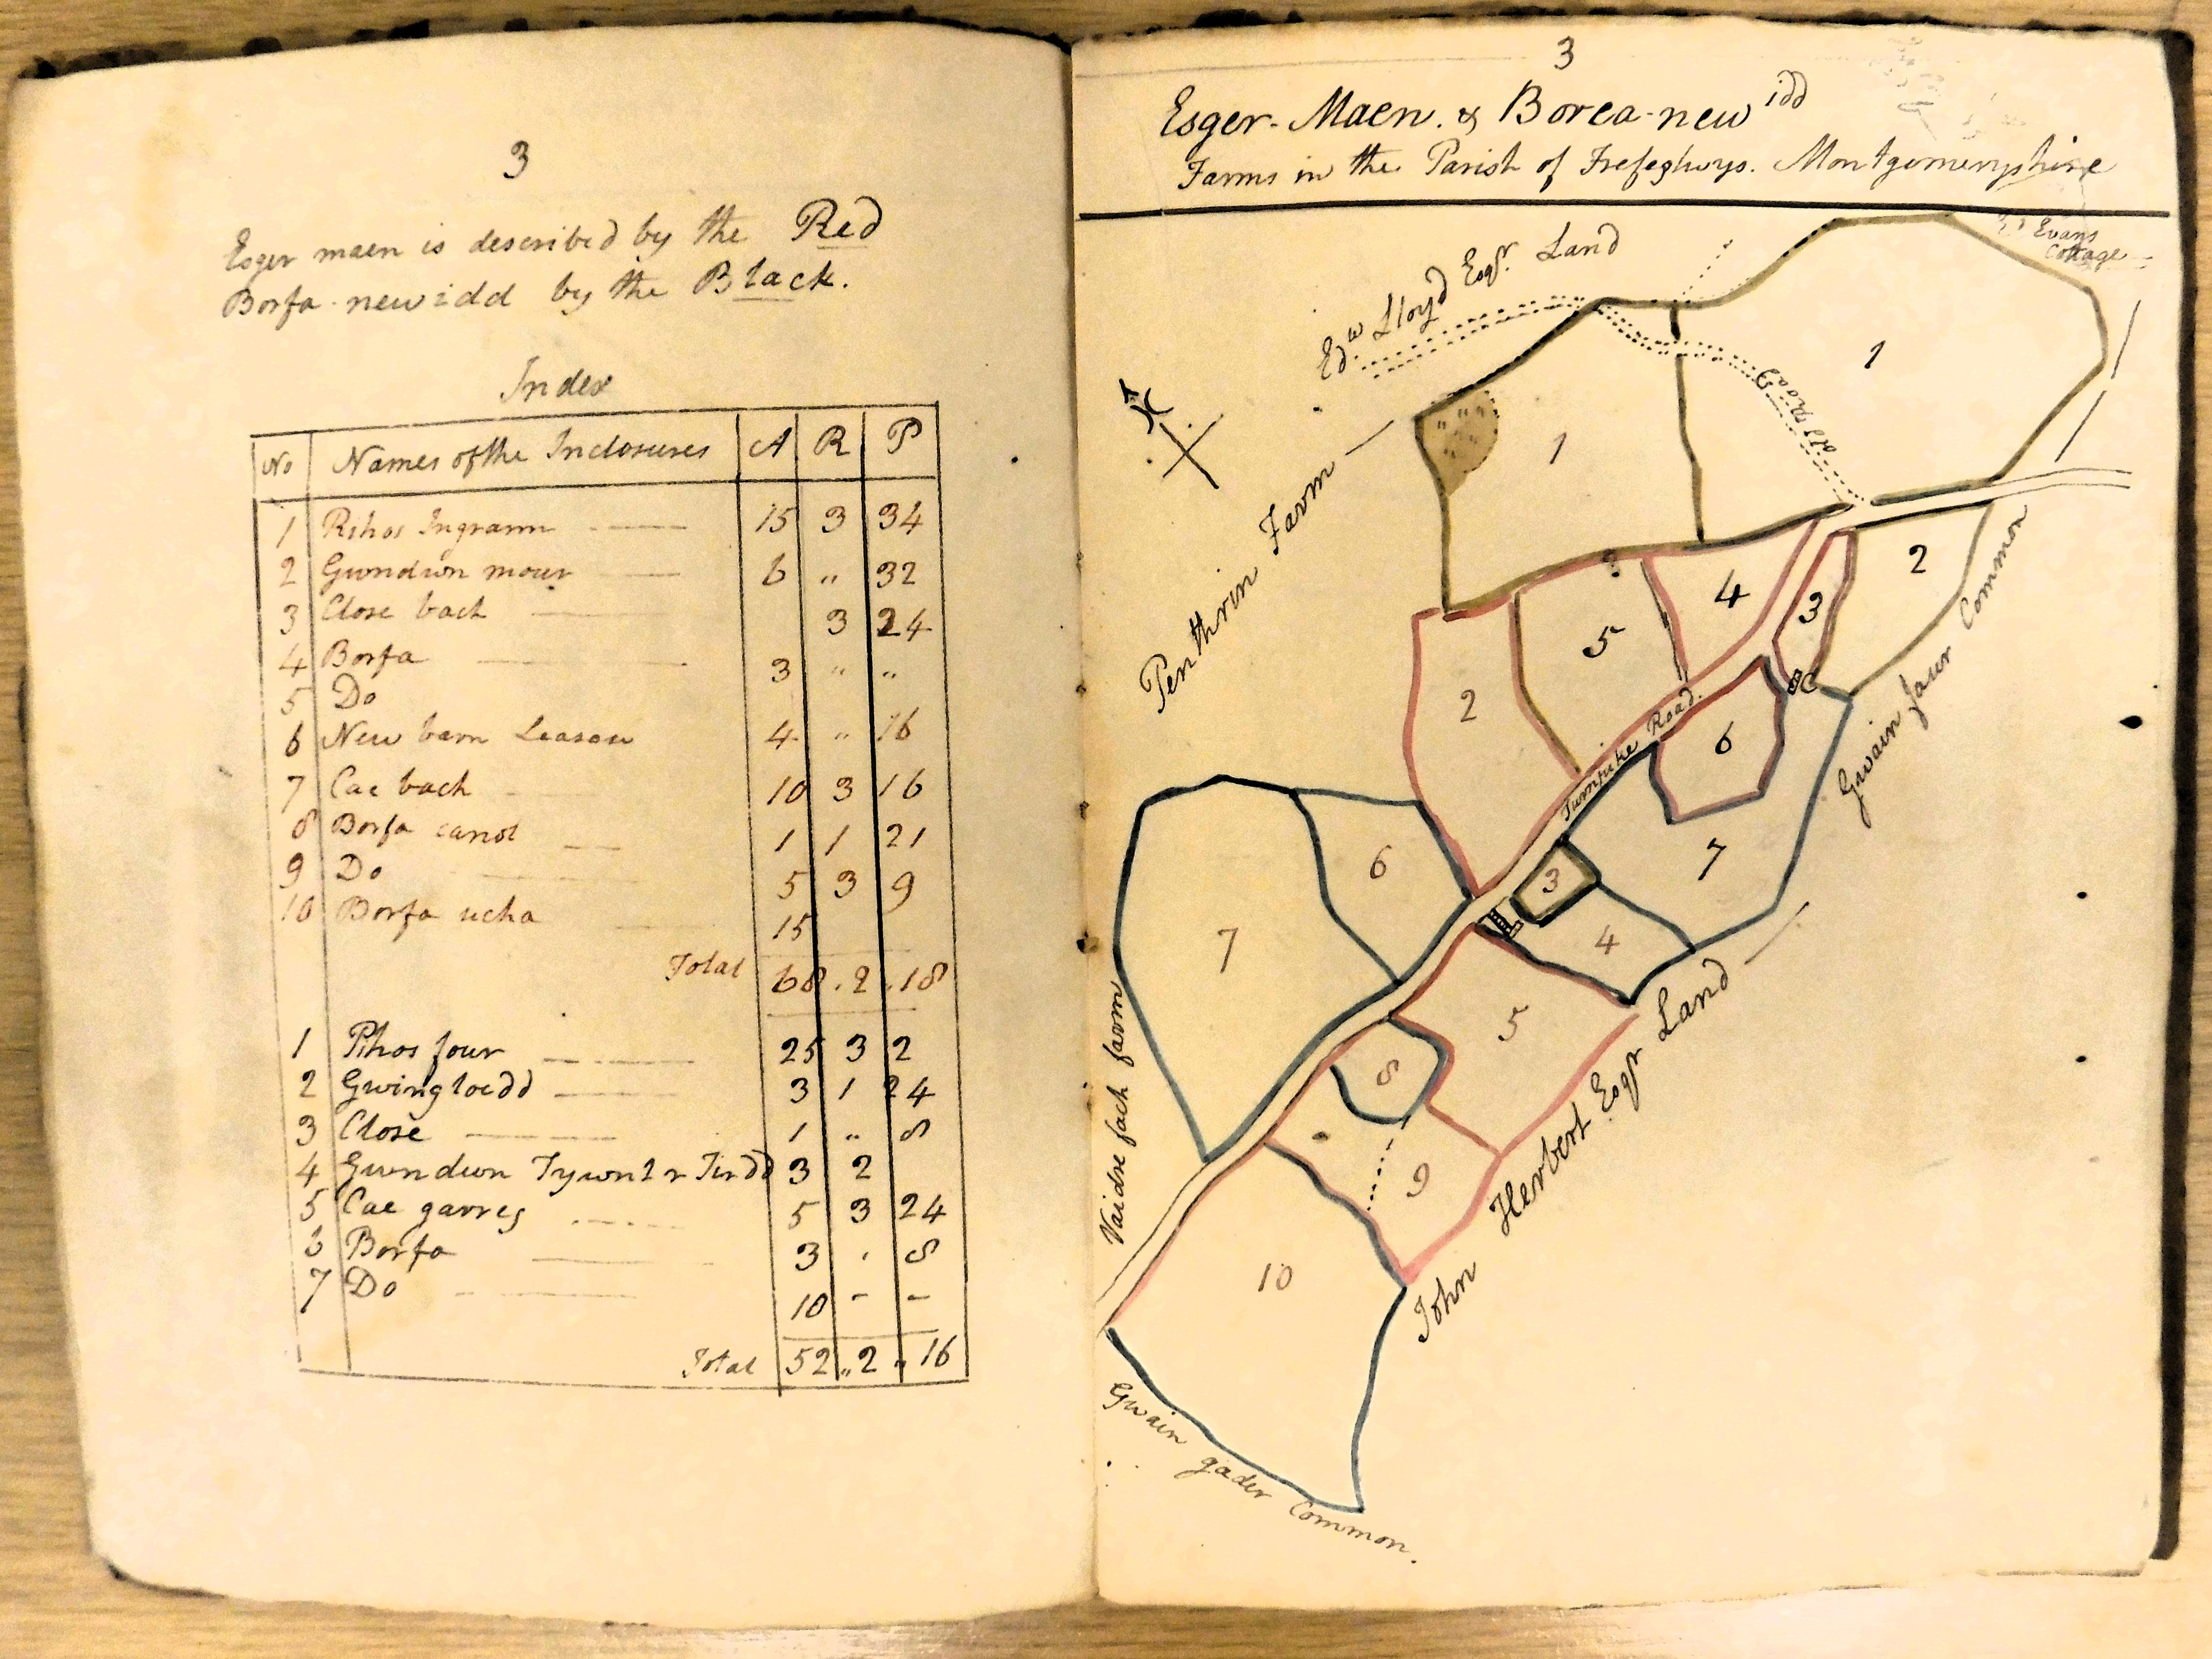 3
Esger maen is described by the Red
Borfa-newidd by the Black.
Index
No Names of the Inclosures A R P
1 Rhos Ingramm 15 3 34
2 Gwndwn mour 6 " 32
3 Close bach 3 24
4 Borfa 3 " "
5 Do
6 New barn Leasow 4 " 16
7 Cae bach 10 3 16
8 Borfa canol 1 1 21
9 Do 5 3 9
10 Borfa ucha 15
Total 68 . 2 . 18
1 Rhos four 25 3 2
2 Gwingloedd 3 1 24
3 Close 1 " 8
4 Gwndwn 3 2
5 Cae garreg 5 3 24
6 Borfa 3 . 8
7 Do 10 - -
Total 52 " 2 " 16
3
Esger-Maen. & Borea-newidd
Farms in the Parish of Trefeglwys. Montgomeryshire
Edw Lloyd Esqr. Land
Evans
Cottage
Old Road
1
1
Penthrin Farm
2
3
4
5
2
Gwain four Common
Turnpike Road.
6
7
3
4
6
7
5
8
9
10
Vaidre fach farm
John Herbert Esqr Land
Gwain gader Common.